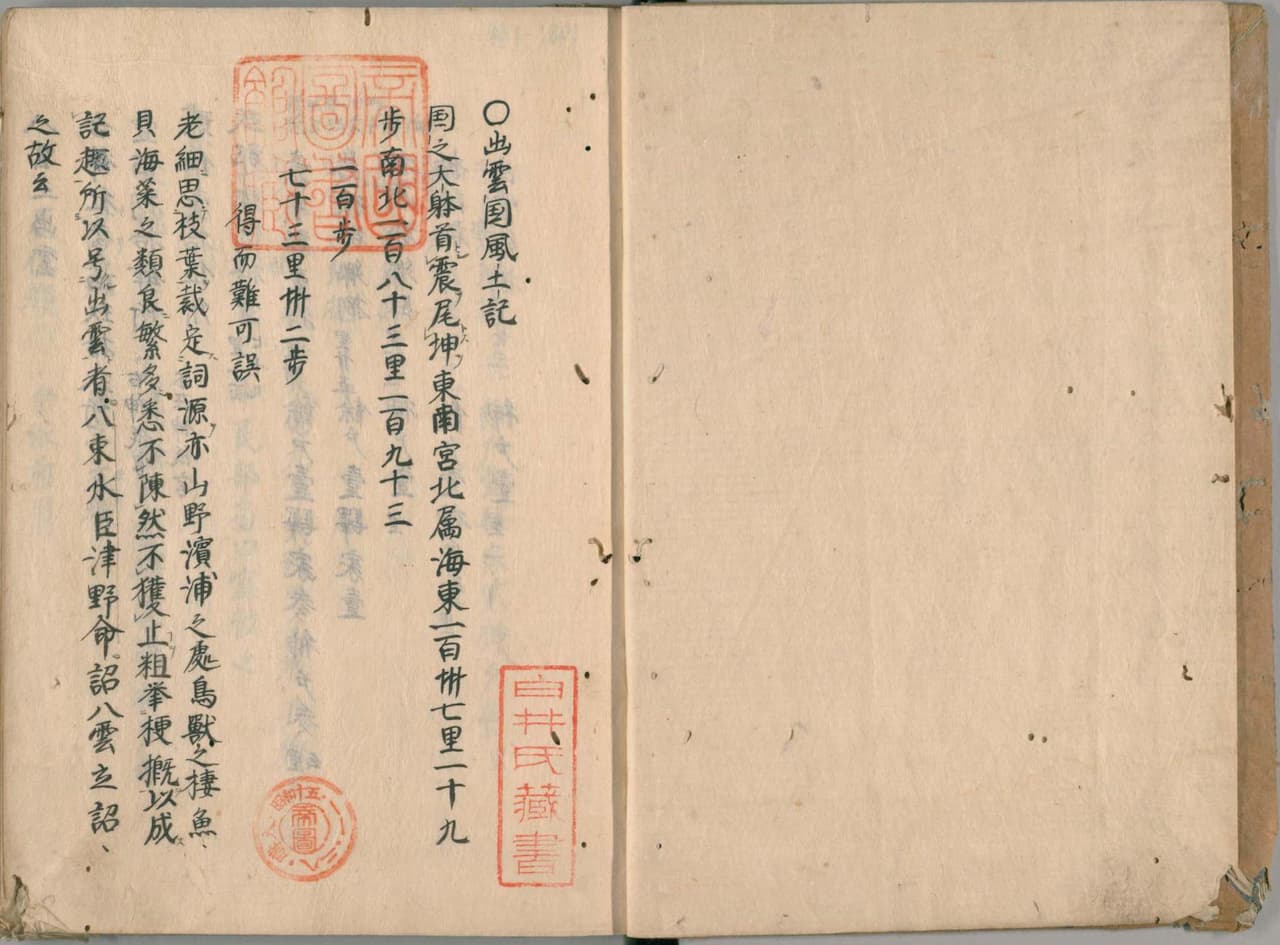 〇出雲国風土記
国之大躰首震尾坤東南宮北属海東一百卅七里一十九
歩南北一百八十三里一百九十三
一百歩
七十三里卅二歩
得而難可誤
老細思枝葉裁定詞源亦山野濱浦之處鳥獸之棲魚
貝海菜之類良繁多悉不陳然不獲止粗挙梗概以成
記趣所以号出雲者八束水臣津野命詔八雲立詔
之故云
帝国圖書館藏
白井氏藏書
帝圖
昭和